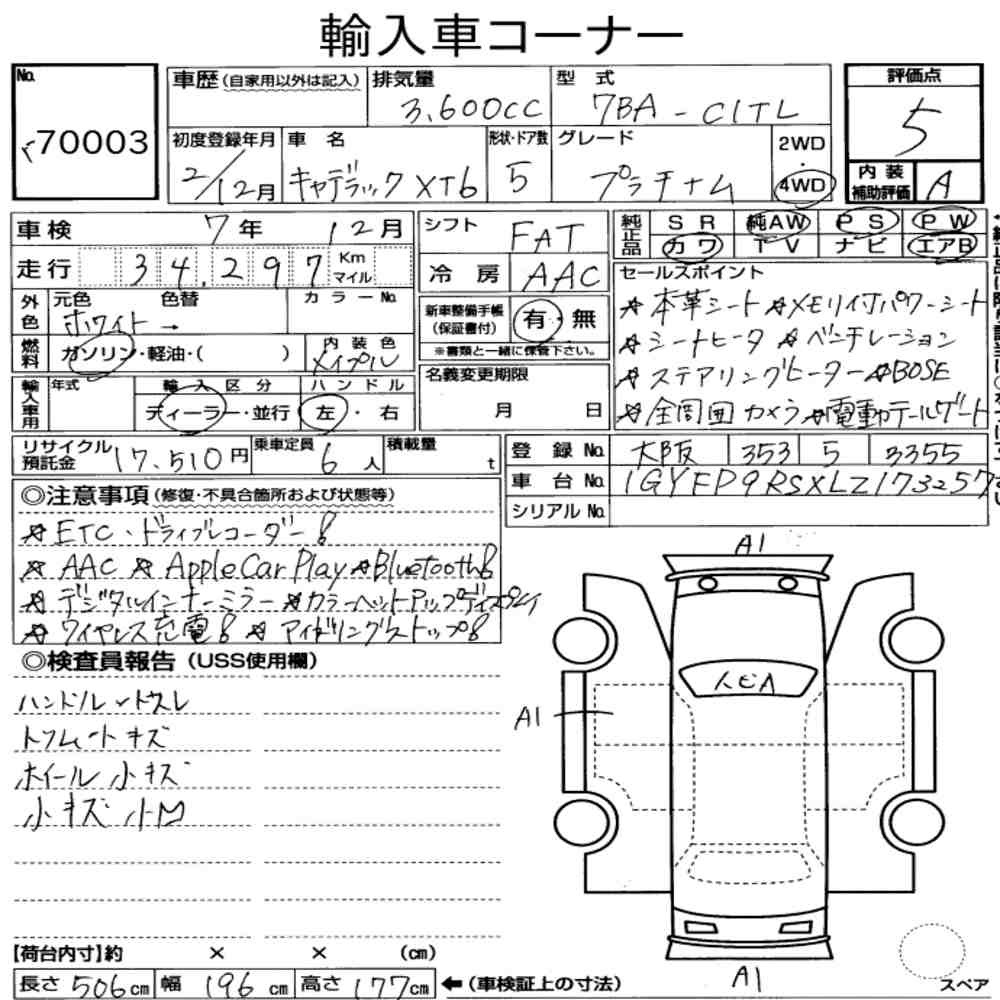 輸入車コーナー
No.
70003
車歴 (自家用以外は記入)
排気量
3,600CC
型式
7BA-C1TL
評価点
5
初度登録年月
2/12月
車名
キャデラック XT6
形状・ドア数
5
グレード
プラチナム
2WD
・
4WD
内装補助評価
A
車検 7年 12月
シフト FAT
純正品 SR 純AW PS PW
カワ TV ナビ エアB
走行 34,297 Km マイル
冷房 AAC
セールスポイント
☆本革シート ☆メモリ付パワーシート
☆シートヒータ ☆ベンチレーション
☆ステアリングヒーター ☆BOSE
☆全周囲カメラ ☆電動テールゲート
外色 元色 色替 カラーNo.
ホワイト →
新車整備手帳(保証書付) 有・無
※書類と一緒に保管下さい。
燃料 ガソリン・軽油・( )
内装色
メイプル
名義変更期限
月 日
輸入車用 年式 輸入区分 ハンドル
ディーラー・並行 左・右
リサイクル預託金 17,510円
乗車定員 6人
積載量 t
登録No. 大阪 353 5 3355
車台No. 1GYFP9RSXLZ173257
シリアルNo.
◎注意事項 (修復・不具合箇所および状態等)
☆ETC・ドライブレコーダー!
☆AAC ☆Apple Car Play ☆Bluetooth!
☆デジタルインナーミラー ☆カラーヘットアップディスプレイ
☆ワイヤレス充電! ☆アイドリングストップ!
◎検査員報告 (USS使用欄)
ハンドルシトスレ
トリムシートキズ
ホイール小キズ
小キズ 小凹
A1
A1
A1
スペア
【荷台内寸】約 × × (cm)
長さ 506cm 幅 196cm 高さ 177cm ←(車検証上の寸法)